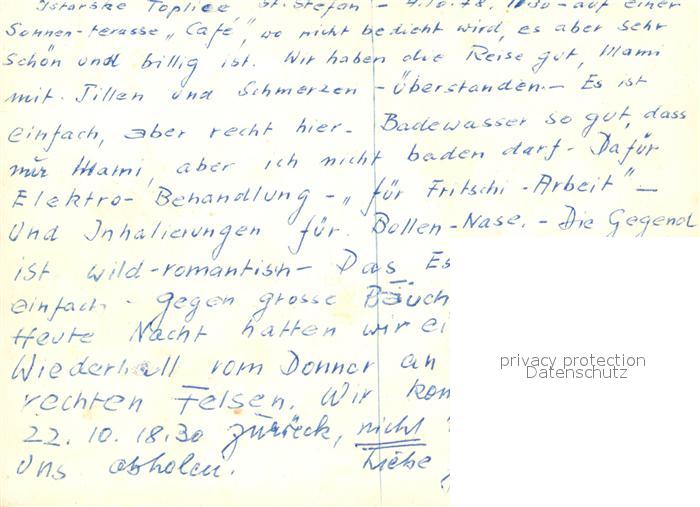 Istarske Toplice St. Stefan - 4.10.78. 1130 - auf einer
Sonnen-terasse "Café", wo nicht bedient wird, es aber sehr
schön und billig ist. Wir haben die Reise gut, Mami
mit Pillen und Schmerzen - überstanden. - Es ist
einfach, aber recht hier - Badewasser so gut, dass
nur Mami, aber ich nicht baden darf - Dafür
Elektro-Behandlung - "für Fritschi-Arbeit" -
Und Inhalierungen für Bollen-Nase. - Die Gegend
ist wild-romantisch - Das Es
einfach - gegen grosse Bäuch
Heute Nacht hatten wir ei
Wiederhall vom Donner an
rechten Felsen. Wir kom
22.10.18.30 zurück, nicht
uns abholen. Liebe
privacy protection
Datenschutz